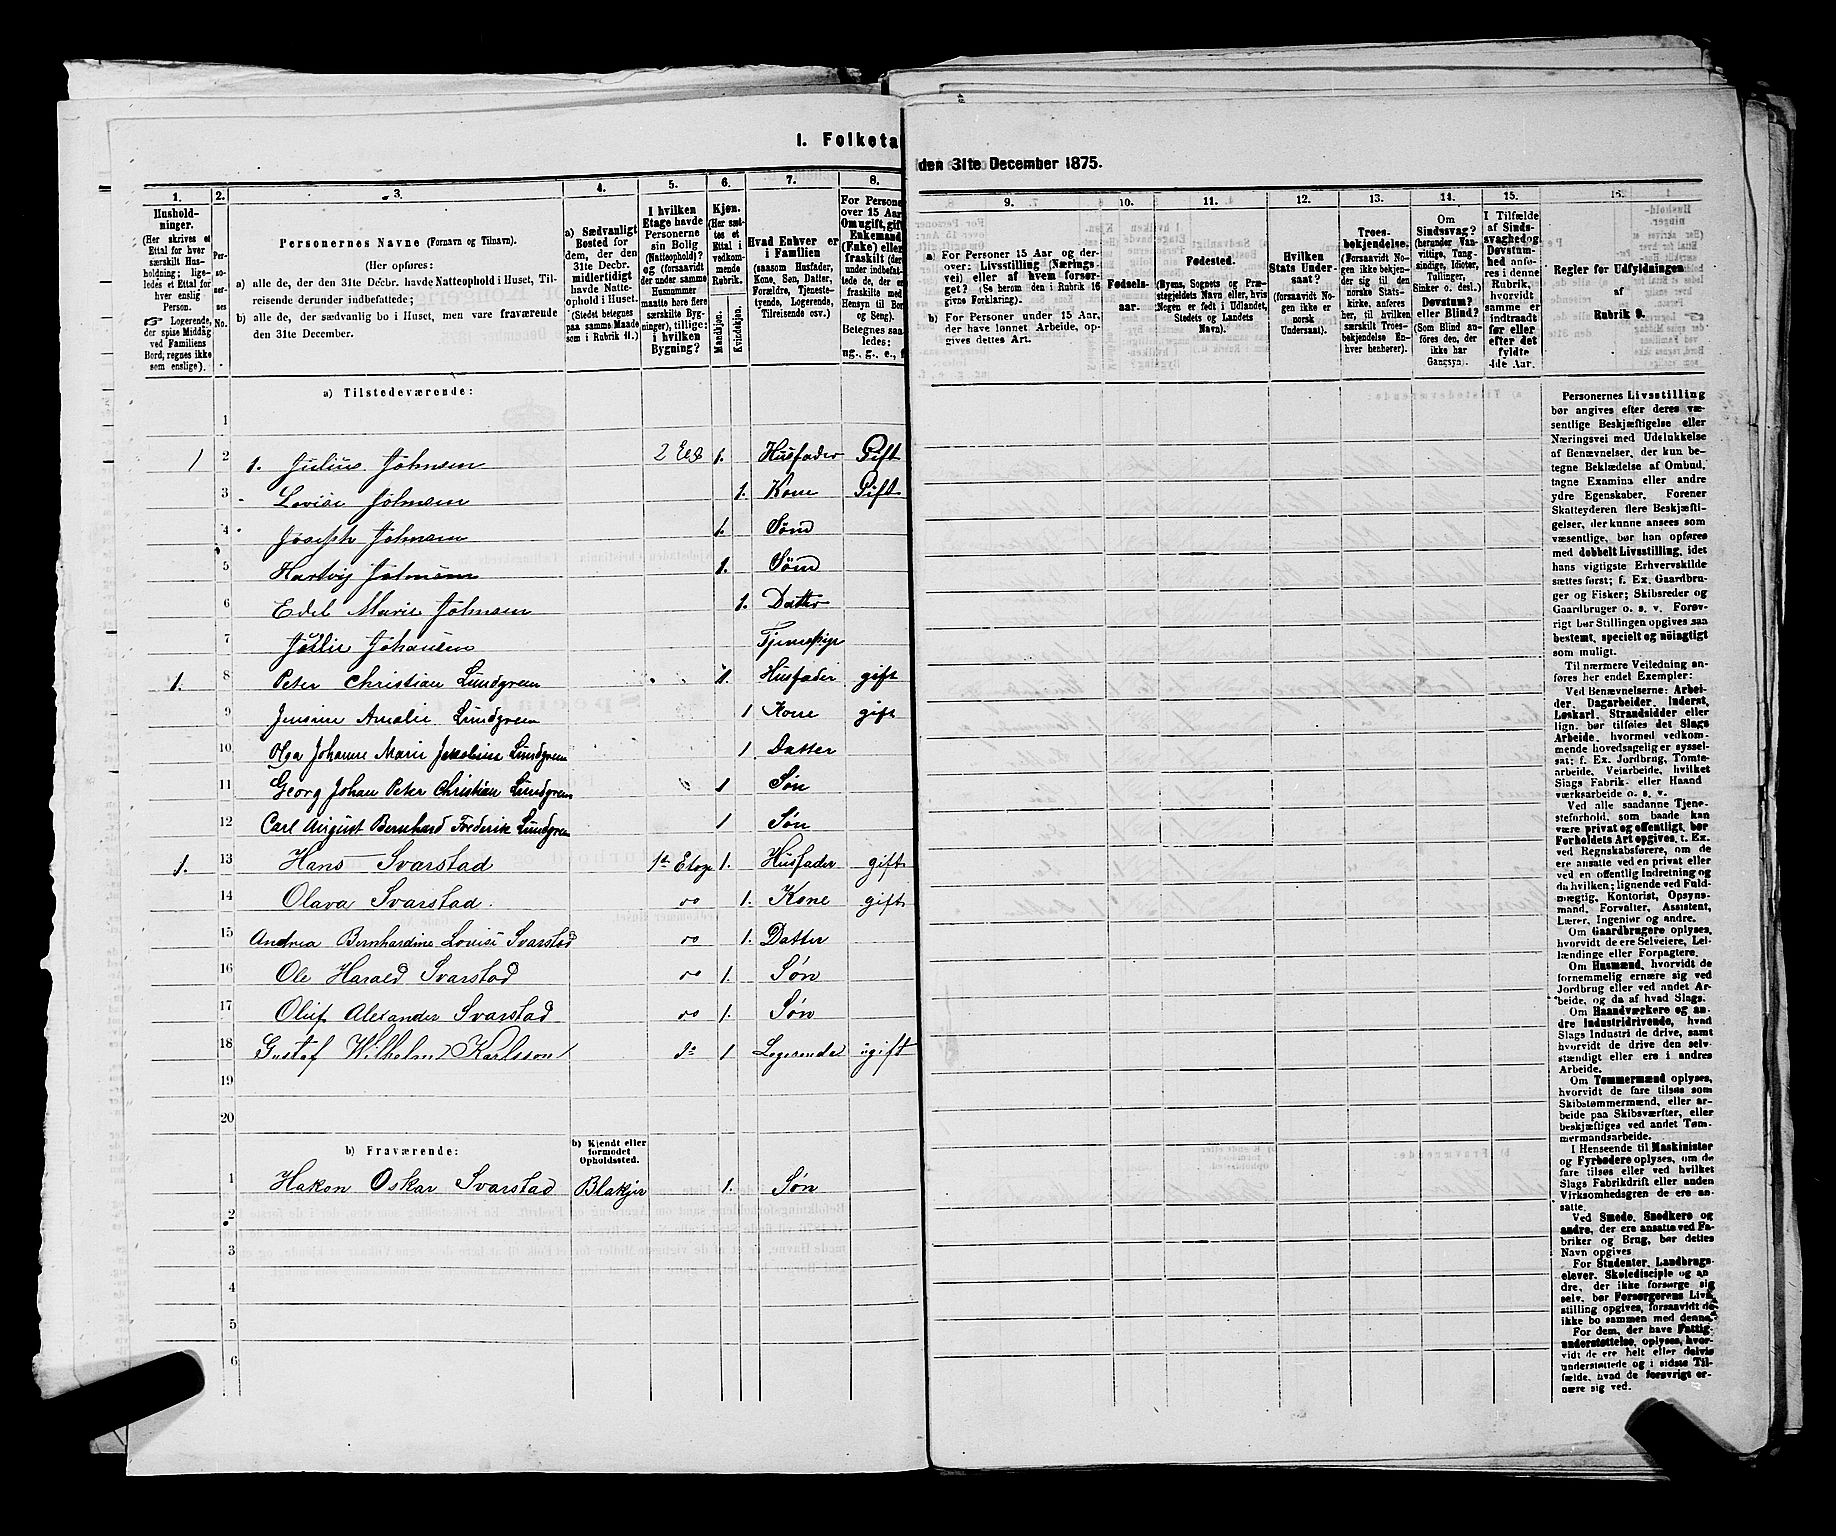 I. Folketa
den 31te December 1875.
1.
2.
3.
4.
5.
6.
7.
8.
Hushold-
ninger.
(Her skrives et
Ettal for hver
særskilt Hus-
holdning; lige-
ledes et Ettal for
hver enslig
Person.
Logerende,
der spise Middag
ved Familiens
Bord, regnes ikke
som enslige).
Per-
so-
ner-
nes
No.
Personernes Navne (Fornavn og Tilnavn).
(Her opføres:
a) alle de, der den 31te Decbr. havde Natteophold i Huset, Til-
reisende derunder indbefattede;
b) alle de, der sædvanlig bo i Huset, men vare fraværende
den 31te December.
a) Sædvanligt
Bosted for
dem, der den
31te Decbr.
midlertidigt
havde Natte-
ophold i Huset.
(Stedet betegnes
paa samme Maade
som i Rubrik 11.)
I hvilken
Etage havde
Personerne
sin Bolig
(Natteophold)?
og (forsaavidt
der under samme
Husnummer
maatte høre flere
særskilte Byg-
ninger), tillige:
i hvilken
Bygning?
Kjøn.
(Her sæt-
tes et
Ettal i
vedkom-
mende
Rubrik.)
Mandkjøn.
Kvindekjøn.
Hvad Enhver er
i Familien
(saasom Husfader,
Kone, Søn, Datter,
Forældre, Tjeneste-
tyende, Logerende,
Tilreisende osv.)
For Persone
over 15 Aar
Om ugift, gift
Enkemand
(Enke) eller
fraskilt (der
under indbefat-
tede de, der er
fraskilte med
Hensyn til Bor
og Seng).
Betegnes saa
ledes:
ug., g., e., f.
9.
10.
11.
12.
13.
14.
15.
16.
a) For Personer 15 Aar og der-
over: Livsstilling (Nærings-
vei) eller af hvem forsør-
get? (Se herom den i Rubrik 16
givne Forklaring).
b) For Personer under 15 Aar,
der have lønnet Arbeide, op-
gives dettes Art.
Fødsels-
aar.
Fødested.
(Byens, Sognets og Præ-
stegjeldets Navn eller, hvis
Nogen er født i Udlandet,
Stedets og Landets
Navn).
Hvilken
Stats Under-
saat?
(forsaavidt No-
gen ikke er
norsk
Undersaat).
Troes-
bekjendelse.
(Forsaavidt No-
gen ikke bekjen-
der sig til den
norske Stats-
kirke, anføres
her, til hvilken
særskilt Troes-
bekjendelse En-
hver henhører).
Om
Sindssvag?
(herunder Van-
vittige, Tung-
sindige, Idioter,
Tullinger,
Sinker o. desl.)
Døvstum?
eller Blind?
(Som Blind an-
føres den, der
ikke har
Gangsyn).
I Tilfælde
af Sinds-
svaghed og
Døvstum-
hed anfø-
res i denne
Rubrik,
hvorvidt
samme er
indtraadt
før eller
efter det
fyldte
4de Aar.
Regler for Udfyldningen
af
Rubrik 9.
a) Tilstedeværende:
1
1 2 1. Julius Johnsen 2 Etg 1. Husfader Gift
3 Lovise Johnsen 1. Kone Gift
4 Joseph Johnsen 1. Sønd
5 Hartvig Johnsen 1. Sønd
6 Edel Marie Johnsen 1. Datter
7 Johansen
1. 8 Peter Christian Lundgreen 1. Husfader gift
9 Jensine Amalie Lundgreen 1 Kone gift
10 Olga Johanne Marie Lundgreen 1 Datter
11 Georg Johan Peter Christian Lundgreen 1 Søn
12 Carl August Bernhard Frederik Lundgreen 1 Søn
1. 13 Hans Svarstad 1st Etage 1. Husfader gift
14 Olava Svarstad. 1. Kone gift
15 Andrea Bernhardine Lovise Svarstad 1. Datter
16 Ole Harald Svarstad 1. Søn
17 Oluf Alexander Svarstad 1. Søn
18 Gustaf Wilhelm Karlsson do 1 Logerende ugift
19
20
b) Fraværende:
b) Kjendt eller
formodet
Opholdssted.
1 Hakon Oskar Svarstad Blakjer 1. Søn
2
3
4
5
6
Personernes Livsstilling
bør angives efter deres væ-
sentlige Beskjæftigelse eller
Næringsvei med Udelukkelse
af Benævnelser, der kun be-
tegne Beklædelse af Ombud,
tagne Examina eller andre
ydre Egenskaber. Forener
Skatteyderen flere Beskjæfti-
gelser, der kunne ansees som
væsentlige, bør han opføres
med dobbelt Livsstilling, idet
hans vigtigste Erhvervskilde
sættes først; f. Ex. Gaardbru-
ger og Fisker; Skibsreder og
Gaardbruger o. s. v. Forøv-
rigt bør Stillingen opgives saa
bestemt, specielt og nöiagtigt
som muligt.
Til nærmere Veiledning an-
føres her endel Exempler:
Ved Benævnelserne: Arbei-
der, Dagarbeider, Inderst,
Løskarl, Strandsidder eller
lign. bør tilføies det Slags
Arbeide, hvormed vedkom-
mende hovedsagelig er syssel-
sat; f. Ex. Jordbrug, Tomte-
arbeide, Veiarbeide, hvilket
Slags Fabrik- eller Haand
værksarbeide o. s. v.
Ved alle saadanne Tjene-
steforhold, som baade kan
være privat og offentligt, bør
Forholdets Art opgives, t. Ex.
ved Regnskabsførere, om de
ere ansatte ved en privat eller
ved en offentlig Indretning og
da hvilken; lignende ved Fuld-
mægtig, Kontorist, Opsyns-
mand, Forvalter, Assistent,
Lærer, Ingeniør og andre.
Om Gaardbrugere oplyses,
hvorvidt de ere Selveiere, Lei-
lændinge eller Forpagtere.
Om Husmænd, hvorvidt de
fornemmelig ernære sig ved
Jordbrug eller ved andet Ar-
beide, og da af hvad Slags.
Om Haandværkere og an-
dre Industridrivende, hvad
Slags Industri de drive, samt
hvorvidt de drive den selv-
stændigt eller ere i andres
Arbeide.
Om Tømmermænd oplyses,
hvorvidt de fare tilsøs som
Skibstømmermænd, eller ar-
beide paa Skibsværfter, eller
beskjæftiges ved andet Tøm-
mermandsarbeide.
I Henseende til Maskinister
og Fyrbødere oplyses, om de
fare tilsøs eller ved hvilket
Slags Fabrikdrift eller anden
Virksomhedsgren de ere an-
satte.
Ved Smede, Snedkere og
andre, der ere ansatte ved Fa-
briker og Brug, bør dettes
Navn opgives
For Studenter, Landbrugs-
elever, Skoledisciple og an
dre, der ikke forsørge sig
selv, bør Forsørgerens Livs
stilling opgives, forsaavidt de
ikke bo sammen med denne.
For dem, der have Fattig-
understøttelse, oplyses, hvor-
vidt de ere helt eller delvis
understøttede og i sidste Til-
fælde, hvad de forøvrigt er-
nære sig ved.